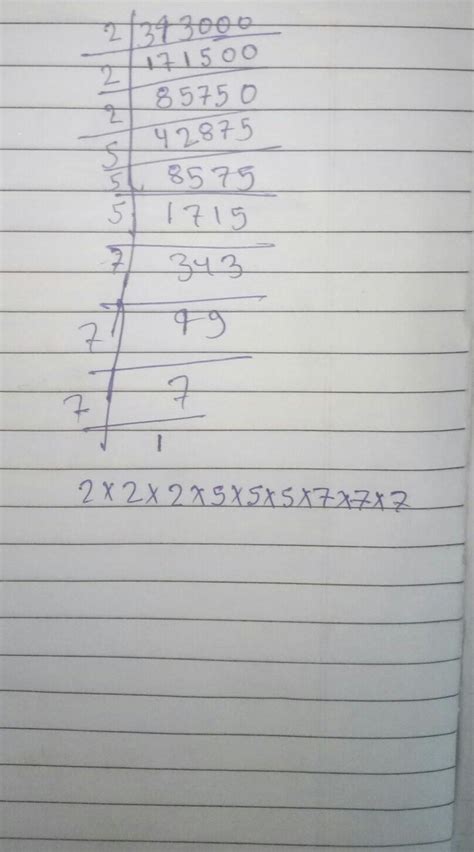 2 | 343000
2 | 171500
2 | 85750
5 | 42875
5 | 8575
5 | 1715
7 | 343
7 | 49
7 | 7
1
2×2×2×5×5×5×7×7×7